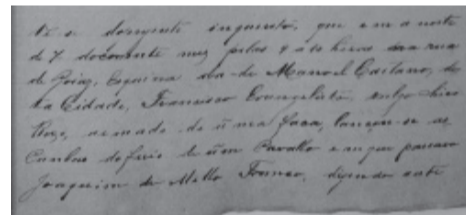 Vê-se do  inquerito, que em a noite
de 7 do corrente mez pelas 8 horas na rua
de Goiaz, esquina da de Manoel Caetano, des
ta Cidade, Francisco Evangelista, vulgo Chico
armado de uma faca, lançou-se as
de um Cavallo em que passava
Joaquim de Mello Franco, dizendo este